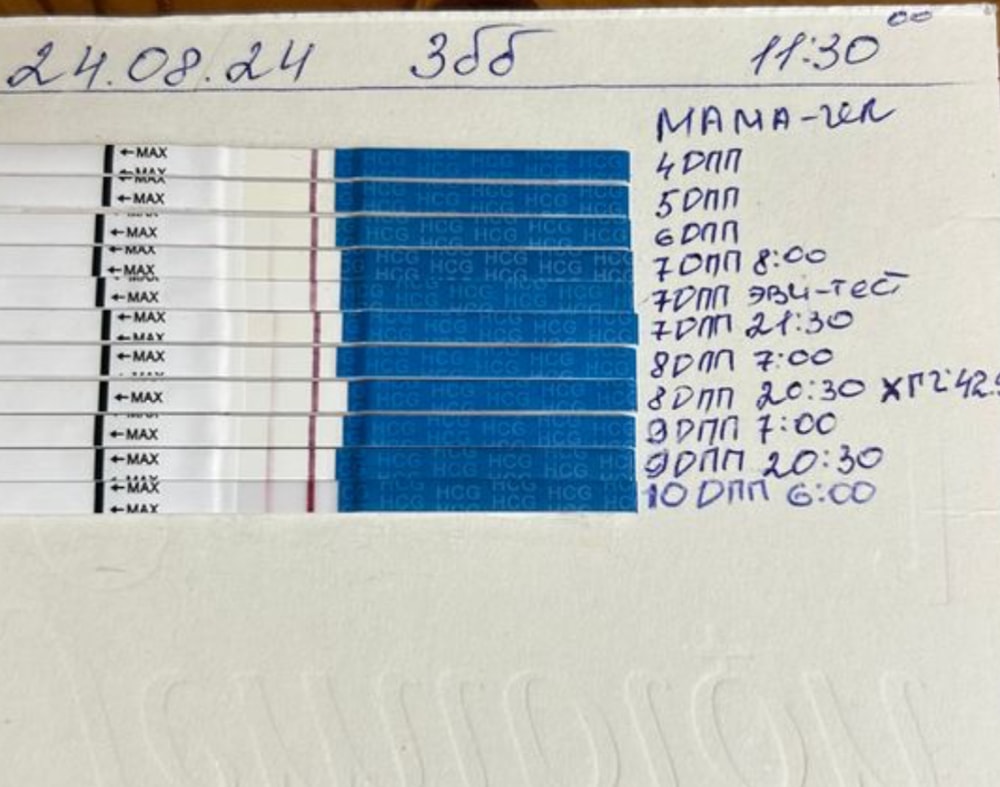 24.08.24 3бб 11:30⁰⁰
МАМА-
←MAX HCG HCG HCG HCG HCG 4 DПП
←MAX
←MAX
←MAX HCG HCG HCG 5 DПП
←MAX HCG HCG HCG 6 DПП
←MAX
←MAX HCG HCG HCG 7 DПП 8:00
←MAX HCG HCG HCG 7 DПП ЭВИ-тест
←MAX HCG HCG HCG 7 DПП 21:30
←MAX
←MAX HCG HCG HCG 8 DПП 7:00
←MAX HCG HCG HCG 8 DПП 20:30 ХГЧ:42.
←MAX HCG HCG HCG 9 DПП 7:00
←MAX HCG HCG HCG 9 DПП 20:30
←MAX HCG HCG 10 DПП 6:00
←MAX